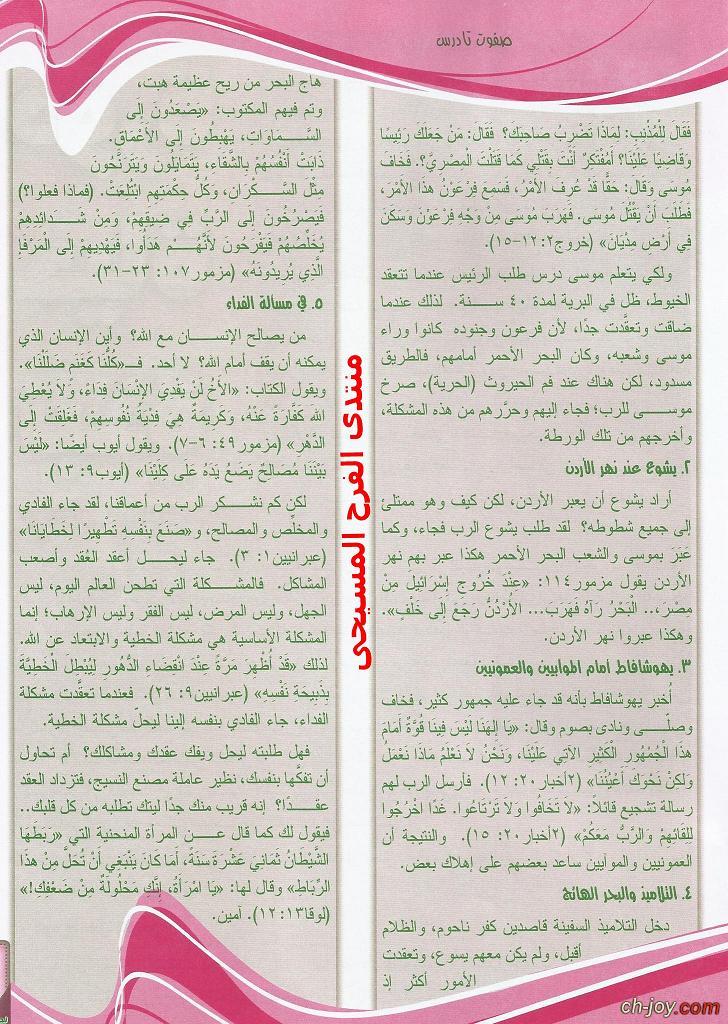 صفوت تادرس
فَقَالَ لِلْمُذْنِبِ: لِمَاذَا تَضْرِبُ صَاحِبَكَ؟ فَقَالَ: مَنْ جَعَلَكَ رَئِيسًا
وَقَاضِيًا عَلَيْنَا؟ أَمُفْتَكِرٌ أَنْتَ بِقَتْلِي كَمَا قَتَلْتَ الْمِصْرِيَّ؟. فَخَافَ
مُوسَى وَقَالَ: حَقًّا قَدْ عُرِفَ الأَمْرُ، فَسَمِعَ فِرْعَوْنُ هذَا الأَمْرَ،
فَطَلَبَ أَنْ يَقْتُلَ مُوسَى. فَهَرَبَ مُوسَى مِنْ وَجْهِ فِرْعَوْنَ وَسَكَنَ
فِي أَرْضِ مِدْيَانَ» (خروج٢: ١٢-١٥).
ولكي يتعلم موسى درس طلب الرئيس عندما تتعقد
الخيوط، ظل في البرية لمدة ٤٠ سنة. لذلك عندما
ضاقت وتعقَّدت جدًا، لأن فرعون وجنوده كانوا وراء
موسى وشعبه، وكان البحر الأحمر أمامهم، فالطريق
مسدود، لكن هناك عند فم الحيروث (الحرية)، صرخ
موسى للرب؛ فجاء إليهم وحرَّرهم من هذه المشكلة،
وأخرجهم من تلك الورطة.
٢. يشوع عند نهر الأردن
أراد يشوع أن يعبر الأردن، لكن كيف وهو ممتلئ
إلى جميع شطوطه؟ لقد طلب يشوع الرب فجاء، وكما
عَبَرَ بموسى والشعب البحر الأحمر هكذا عبر بهم نهر
الأردن يقول مزمور١١٤: «عِنْدَ خُرُوجِ إِسْرَائِيلَ مِنْ
مِصْرَ... الْبَحْرُ رَآهُ فَهَرَبَ... الأُرْدُنُّ رَجَعَ إِلَى خَلْفٍ».
وهكذا عبروا نهر الأردن.
٣. يهوشافاط أمام الموابيين والعمونيين
أُخبر يهوشافاط بأنه قد جاء عليه جمهور كثير، فخاف
وصلَّى ونادى بصوم وقال: «يَا إِلهَنَا لَيْسَ فِينَا قُوَّةٌ أَمَامَ
هذَا الْجُمْهُورِ الْكَثِيرِ الآتِي عَلَيْنَا، وَنَحْنُ لاَ نَعْلَمُ مَاذَا نَعْمَلُ
وَلكِنْ نَحْوَكَ أَعْيُنُنَا» (٢أخبار ٢٠: ١٢). فأرسل الرب لهم
رسالة تشجيع قائلاً: «لاَ تَخَافُوا وَلاَ تَرْتَاعُوا. غَدًا اخْرُجُوا
لِلِقَائِهِمْ وَالرَّبُّ مَعَكُمْ» (٢أخبار ٢٠: ١٥). والنتيجة أن
العمونيين والموآبين ساعد بعضهم على إهلاك بعض.
٤. التلاميذ والبحر الهائج
دخل التلاميذ السفينة قاصدين كفر ناحوم، والظلام
أقبل، ولم يكن معهم يسوع، وتعقدت
الأمور أكثر إذ
هاج البحر من ريح عظيمة هبت،
وتم فيهم المكتوب: «يَصْعَدُونَ إِلَى
السَّمَاوَات، يَهْبِطُونَ إِلَى الأَعْمَاقِ.
ذَابَتْ أَنْفُسُهُمْ بِالشَّقَاء، يَتَمَايَلُونَ وَيَتَرَنَّحُونَ
مِثْلَ السَّكْرَانِ، وَكُلُّ حِكْمَتِهِمِ ابْتُلِعَتْ. (فماذا فعلوا؟)
فَيَصْرُخُونَ إِلَى الرَّبِّ فِي ضِيقِهِمْ، وَمِنْ شَدَائِدِهِمْ
يُخَلِّصُهُمْ فَيَفْرَحُونَ لأَنَّهُمْ هَدَأُوا، فَيَهْدِيهِمْ إِلَى الْمَرْفَإِ
الَّذِي يُرِيدُونَهُ» (مزمور١٠٧: ٢٣-٣١).
٥. في مسألة الفداء
من يصالح الإنسان مع الله؟ وأين الإنسان الذي
يمكنه أن يقف أمام الله؟ لا أحد. فـ«كُلُّنَا كَغَنَمٍ ضَلَلْنَا».
ويقول الكتاب: «الأَخُ لَنْ يَفْدِيَ الإِنْسَانَ فِدَاءً، وَلاَ يُعْطِيَ
اللهَ كَفَّارَةً عَنْهُ، وَكَرِيمَةٌ هِيَ فِدْيَةُ نُفُوسِهِمْ، فَغَلِقَتْ إِلَى
الدَّهْرِ» (مزمور٤٩: ٦-٧). ويقول أيوب أيضًا: «لَيْسَ
بَيْنَنَا مُصَالِحٌ يَضَعُ يَدَهُ عَلَى كِلَيْنَا» (أيوب٩: ١٣).
لكن كم نشكر الرب من أعماقنا، لقد جاء الفادي
والمخلِّص والمصالح، و«صَنَعَ بِنَفْسِهِ تَطْهِيرًا لِخَطَايَانَا»
(عبرانيين١: ٣). جاء ليحل أعقد العُقد وأصعب
المشاكل. فالمشكلة التي تطحن العالم اليوم، ليس
الجهل، وليس المرض، ليس الفقر وليس الإرهاب؛ إنما
المشكلة الأساسية هي مشكلة الخطية والابتعاد عن الله.
لذلك «قَدْ أُظْهِرَ مَرَّةً عِنْدَ انْقِضَاءِ الدُّهُورِ لِيُبْطِلَ الْخَطِيَّةَ
بِذَبِيحَةِ نَفْسِهِ» (عبرانيين٩: ٢٦). فعندما تعقَّدت مشكلة
الفداء، جاء الفادي بنفسه إلينا ليحلّ مشكلة الخطية.
فهل طلبته ليحل ويفك عقدك ومشاكلك؟ أم تحاول
أن تفكّها بنفسك، نظير عاملة مصنع النسيج، فتزداد العقد
عقدًا؟ إنه قريب منك جدًا ليتك تطلبه من كل قلبك..
فيقول لك كما قال عن المرأة المنحنية التي «رَبَطَهَا
الشَّيْطَانُ ثَمَانِيَ عَشْرَةَ سَنَةً، أَمَا كَانَ يَنْبَغِي أَنْ تُحَلَّ مِنْ هذَا
الرِّبَاطِ» وقال لها: «يَا امْرَأَةُ، إِنَّكِ مَحْلُولَةٌ مِنْ ضَعْفِكِ!»
(لوقا١٣: ١٢). آمين.
منتدى الفرح المسيحى
ch-joy.com